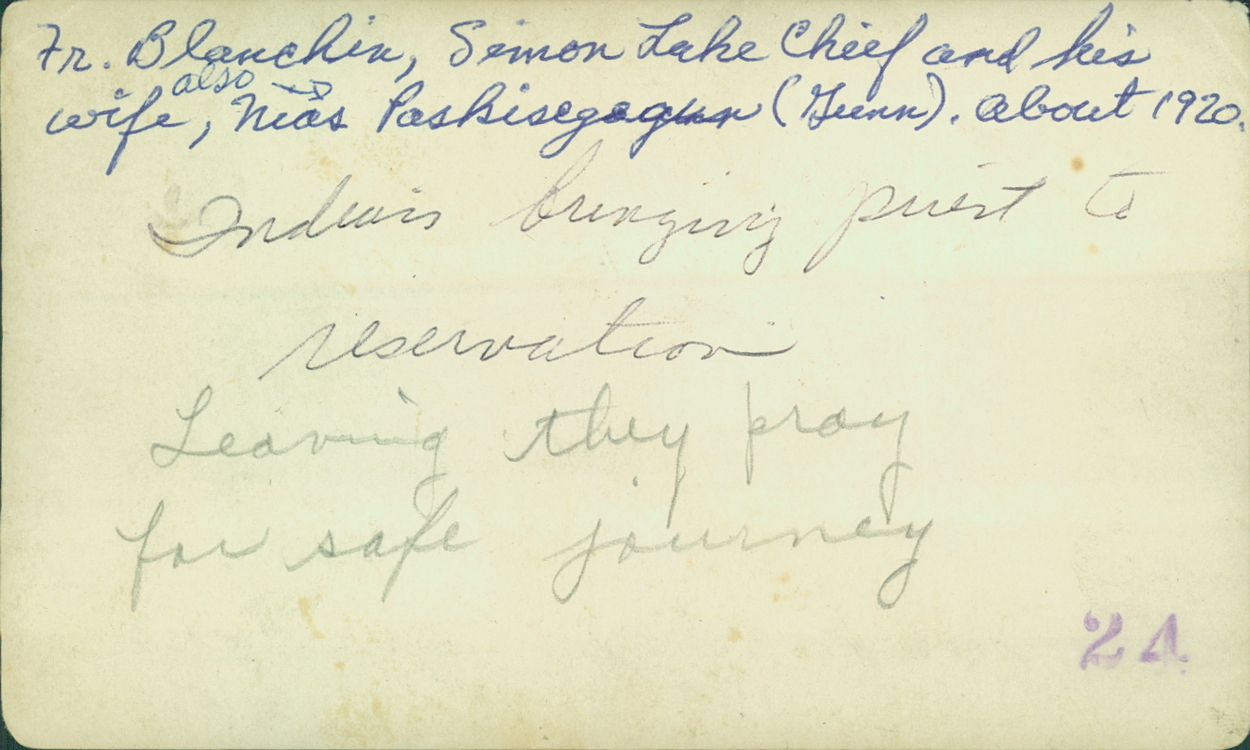 Fr. Blanchin, Simon Lake Chief and his
also
wife, Nias Paskisegagun (Gunn). About 1920.
Indians bringing priest to
reservation
Leaving they pray
for safe journey
24